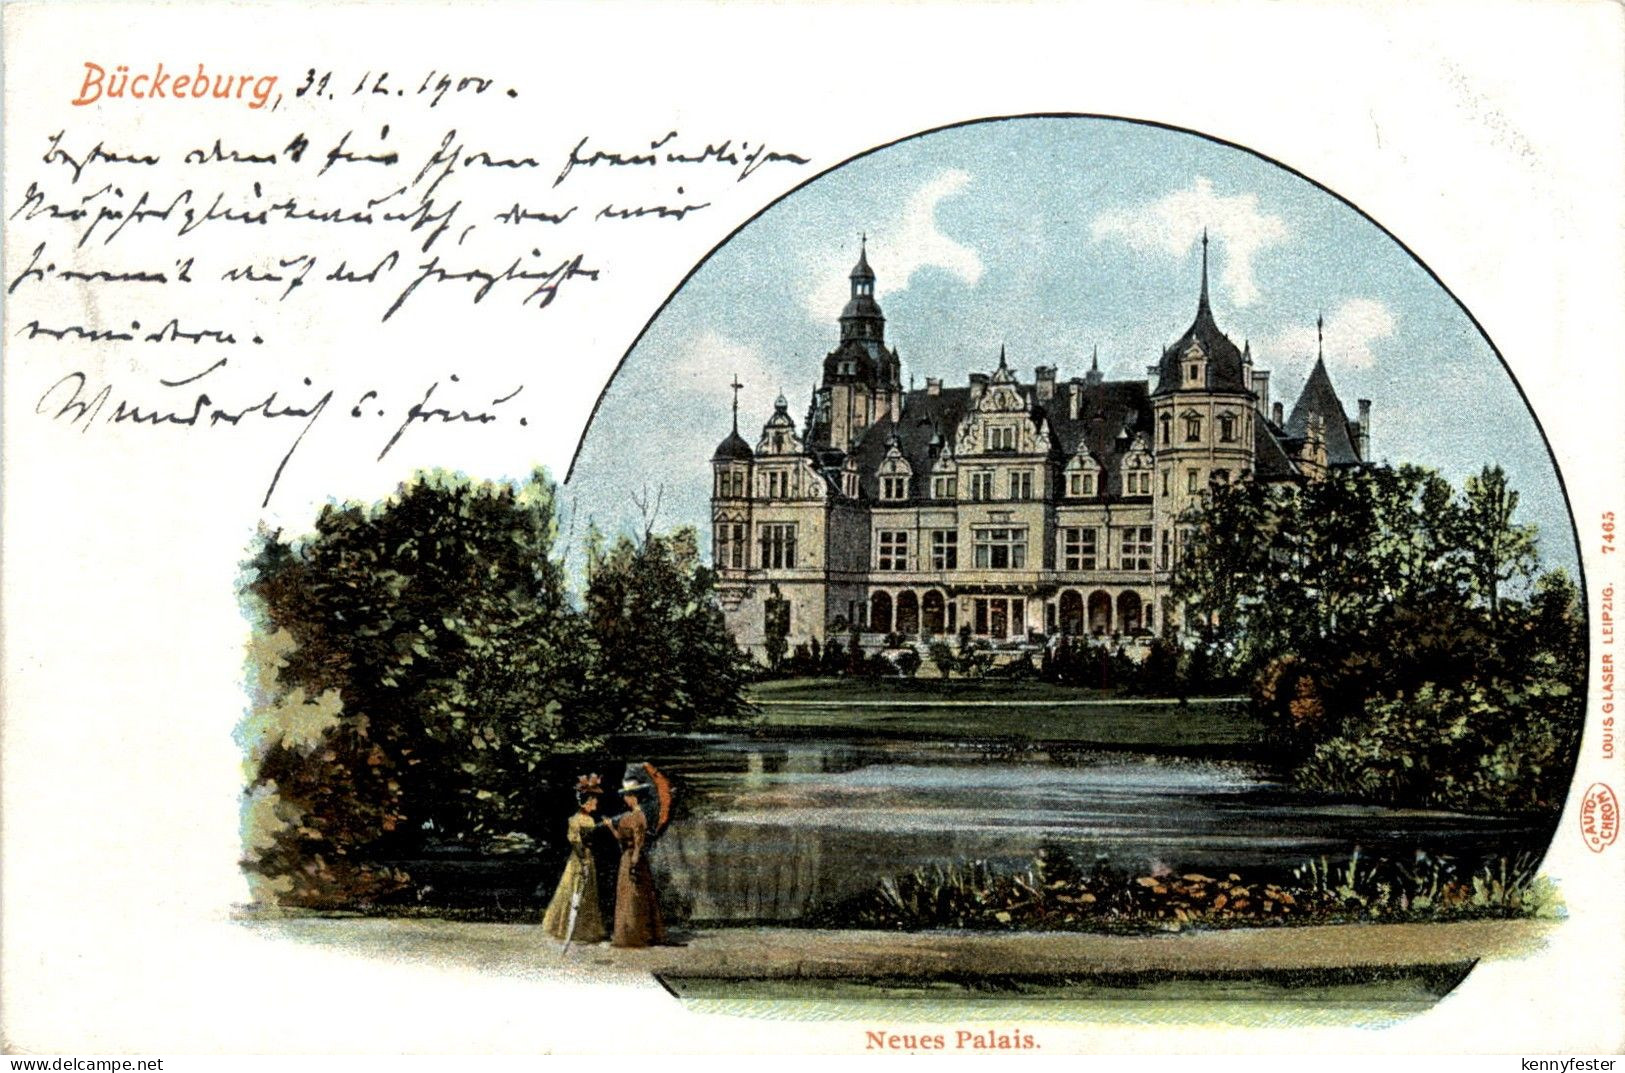 Bückeburg, 31. 12. 1900.
Besten Dank für Ihren freundlichen
Neujahrsglückwunsch, den wir
hiermit auf das herzlichste
erwidern.
Wunderlich u. Frau.
LOUIS GLASER LEIPZIG. 7465
AUTO-
CHROM
Neues Palais.
www.delcampe.net
kennyfester